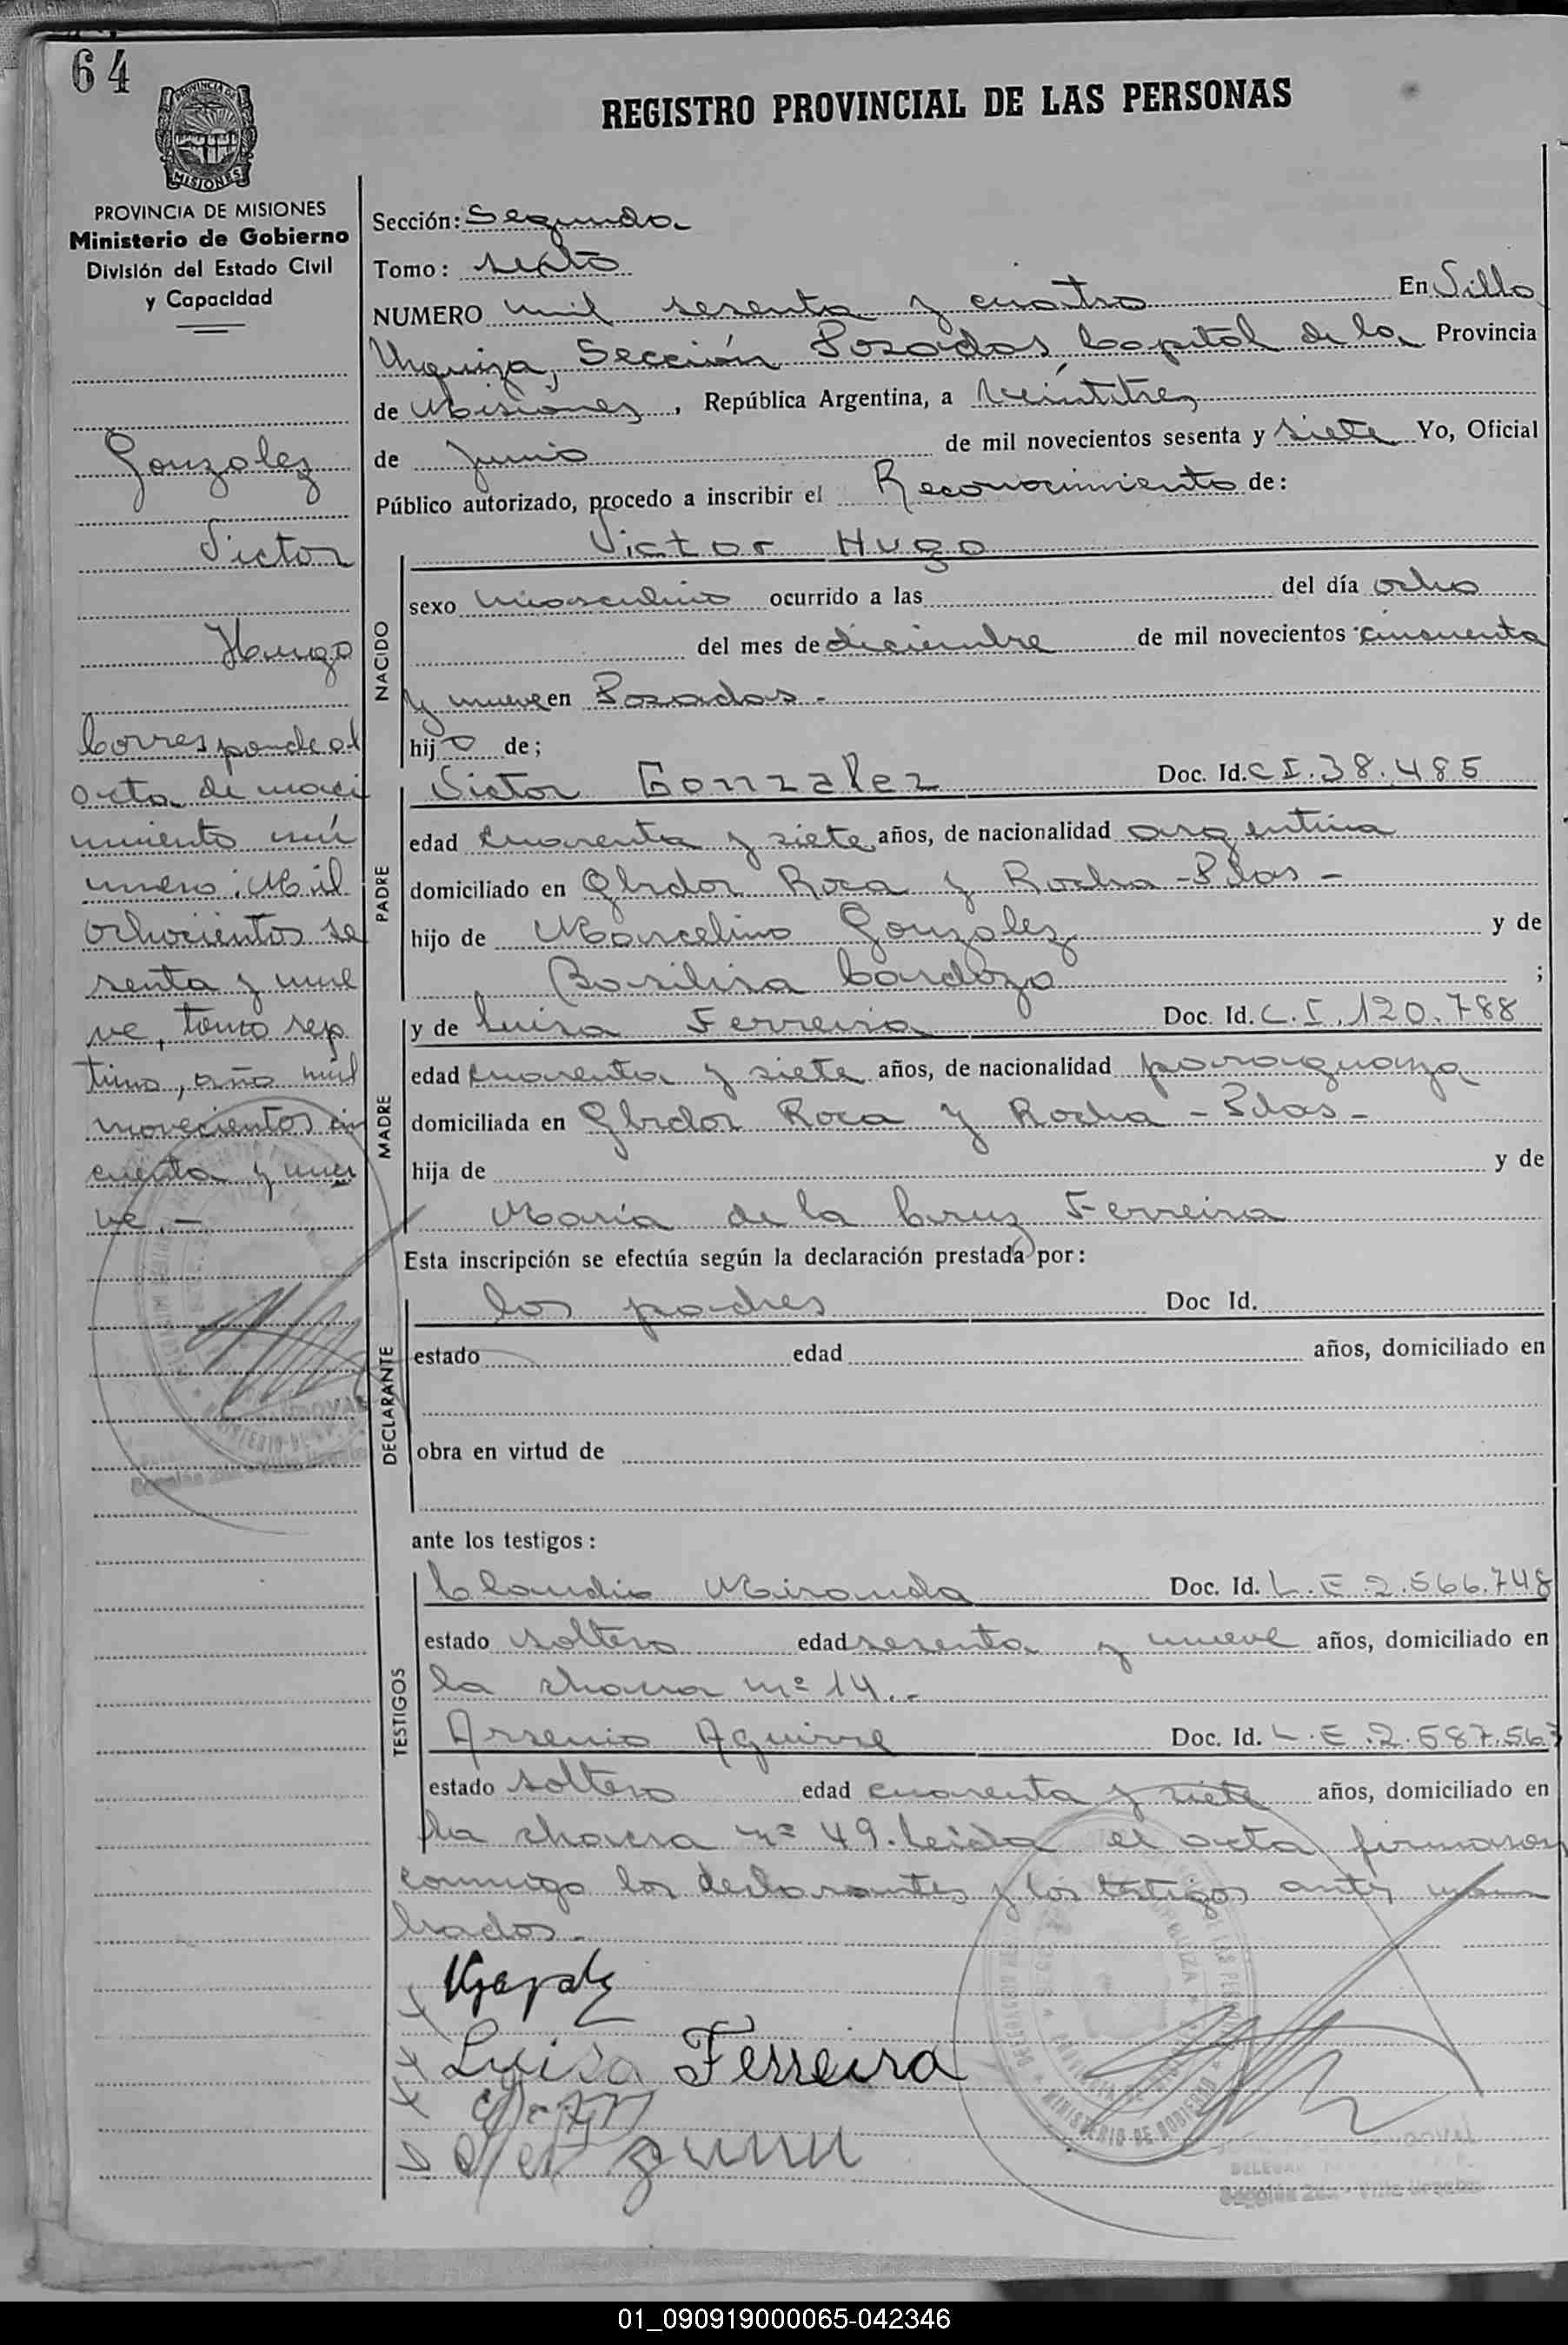 64
PROVINCIA DE
MISIONES
REGISTRO PROVINCIAL DE LAS PERSONAS
PROVINCIA DE MISIONES
Ministerio de Gobierno
División del Estado Civil
y Capacidad
Gonzalez
Victor
Hugo
Corresponde al
acta de naci
miento nú
mero: Mil
ochocientos se
senta y nue
ve, tomo sép
timo, año mil
novecientos cin
cuenta y nue
ve.-
Sección: Segunda
Tomo: sexto
NUMERO mil sesenta y cuatro En Villa
Urquiza, Sección Posadas Capital de la Provincia
de Misiones, República Argentina, a veintitres
de junio de mil novecientos sesenta y siete Yo, Oficial
Público autorizado, procedo a inscribir el Reconocimiento de:
Victor Hugo
NACIDO
sexo masculino ocurrido a las del día ocho
del mes de diciembre de mil novecientos cincuenta
y nueve en Posadas.-
hijo de;
PADRE
Victor Gonzalez Doc. Id. C I. 38.485
edad cuarenta y siete años, de nacionalidad argentina
domiciliado en Gbrdor Roca y Rocha - Pdas -
hijo de Marcelino Gonzalez y de
Basilisa Cardozo ;
MADRE
y de Luisa Ferreira Doc. Id. C.I. 120.788
edad cuarenta y siete años, de nacionalidad paraguaya
domiciliada en Gbrdor Roca y Rocha - Pdas -
hija de y de
María de la Cruz Ferreira
Esta inscripción se efectúa según la declaración prestada por:
DECLARANTE
los padres Doc Id.
estado edad años, domiciliado en
obra en virtud de
ante los testigos:
TESTIGOS
Claudio Miranda Doc. Id. L.E 2.566.748
estado soltero edad sesenta y nueve años, domiciliado en
la chacra nº 14.-
Arsenio Aguirre Doc. Id. L.E.2.587.567
estado soltero edad cuarenta y siete años, domiciliado en
la chacra nº 49. Leída el acta firmaron
conmigo los declarantes y los testigos antes nom
brados.-
Luisa Ferreira
MINISTERIO DE GOBIERNO
01_090919000065-042346